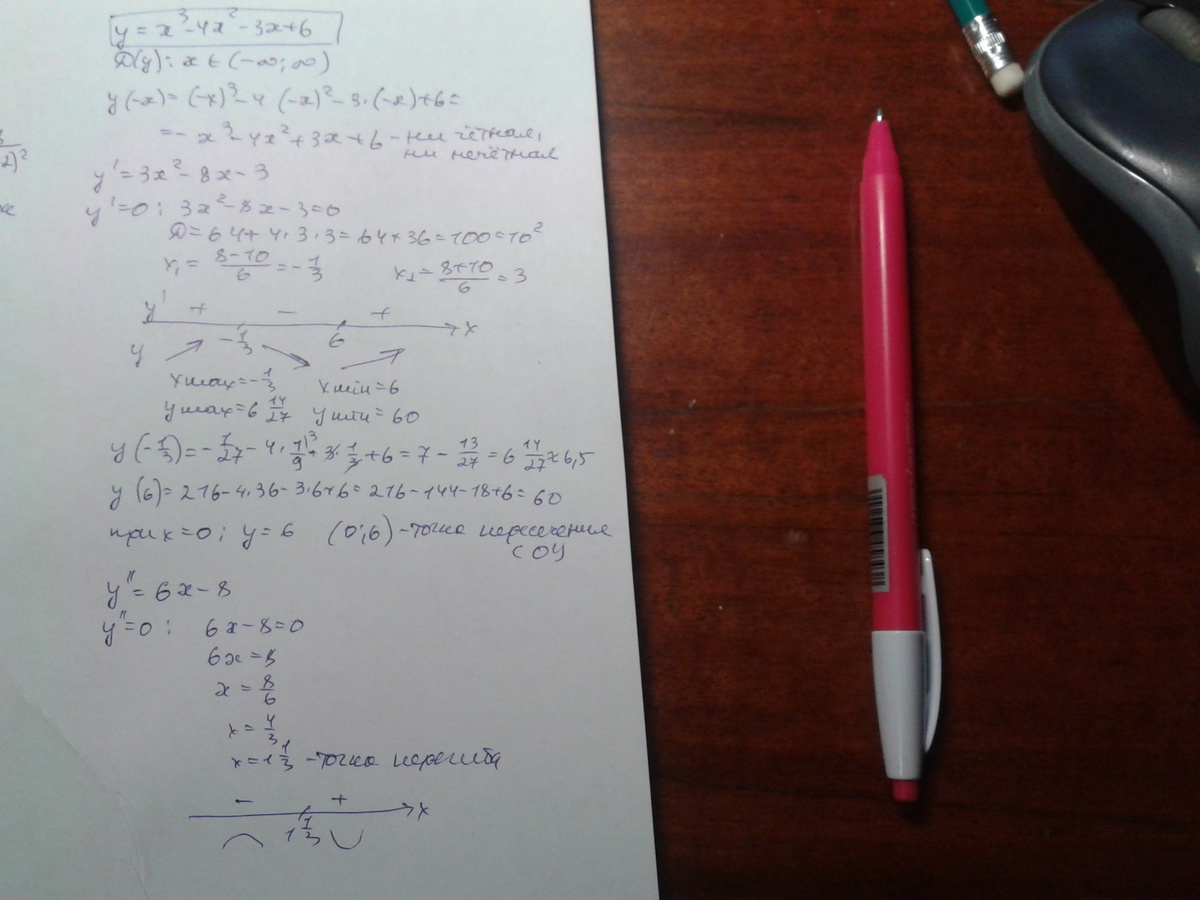 y = x³-4x²-3x+6
D(y): x ∈ (-∞; ∞)
y(-x) = (-x)³-4(-x)²-3·(-x)+6=
=-x³-4x²+3x+6 - ни чётная,
ни нечётная
y' = 3x²-8x-3
y'=0: 3x²-8x-3=0
D=64+4·3·3=64+36=100=10²
x₁ = (8-10)/6 = -1/3 x₂ = (8+10)/6 = 3
y' + - +
-1/3 6 x
y
xmax=-1/3 xmin=6
ymax=6 14/27 ymin=60
y(-1/3)=-1/27-4·1/9+3·1/3+6=7-13/27=6 14/27≈6,5
y(6)=216-4·36-3·6+6=216-144-18+6=60
при x=0; y=6 (0;6)-точка пересечения
с OY
y''=6x-8
y''=0: 6x-8=0
6x=8
x=8/6
x=4/3
x=1 1/3 -точка перегиба
- +
1 1/3 x
2)²